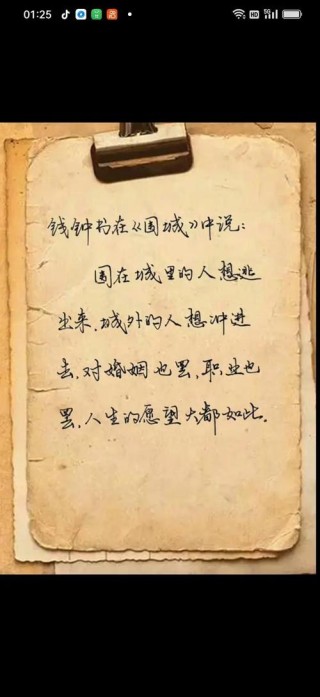 01:25
HD 5G
钱钟书在《围城》中说:
围在城里的人想逃
出来,城外的人想冲进
去,对婚姻也罢,职业也
罢,人生的愿望大都如此。